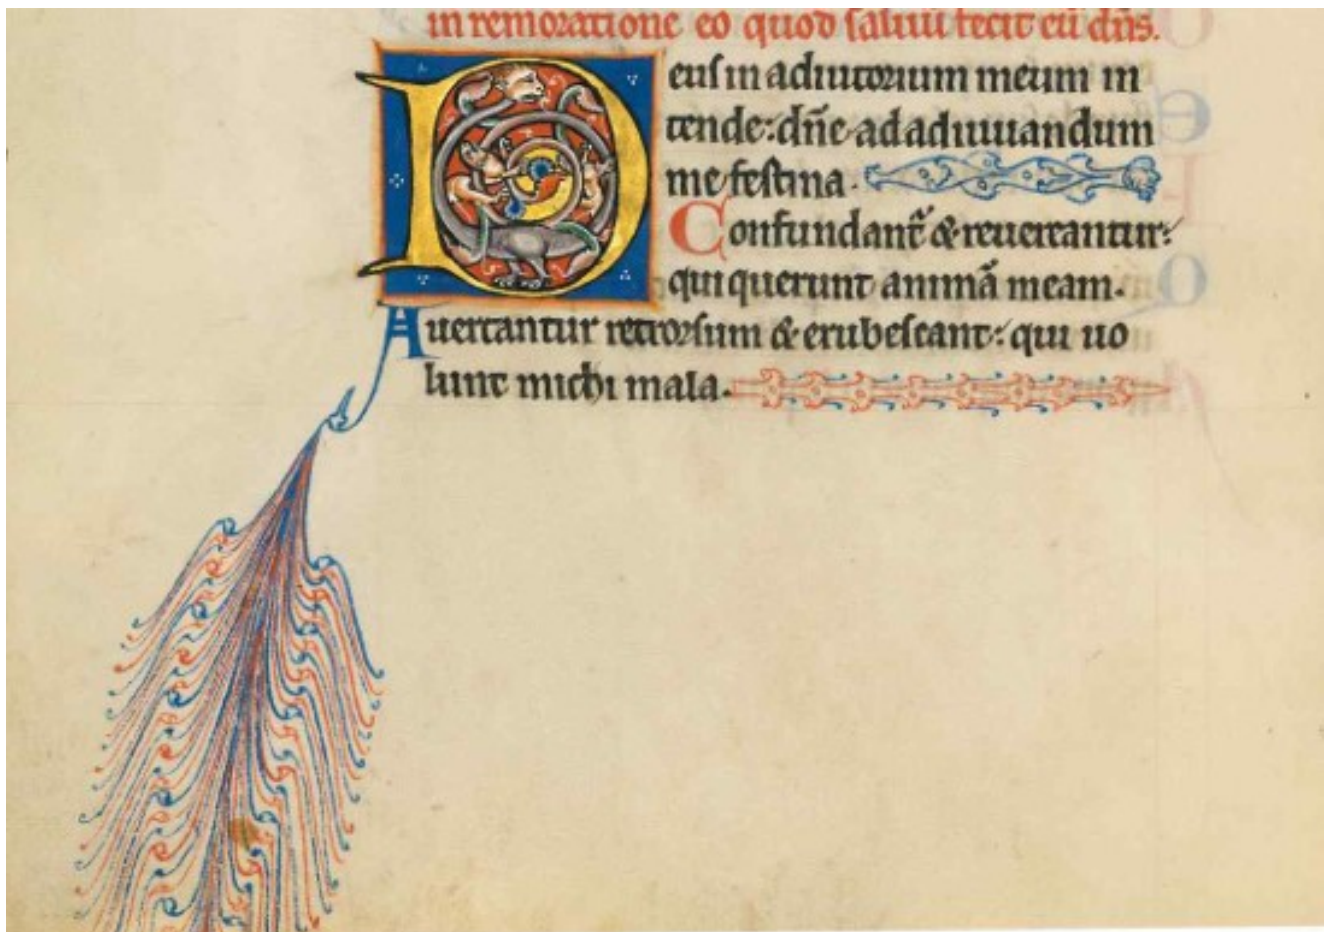 in remoratione eo quod saluū fecit eū dn̄s.
Deus in adiutorium meum in
tende: dn̄e ad adiuuandum
me festina.
Confundant̄ & reuereantur:
qui querunt animā meam.
Auertantur retrorsum & erubescant: qui uo
lunt michi mala.